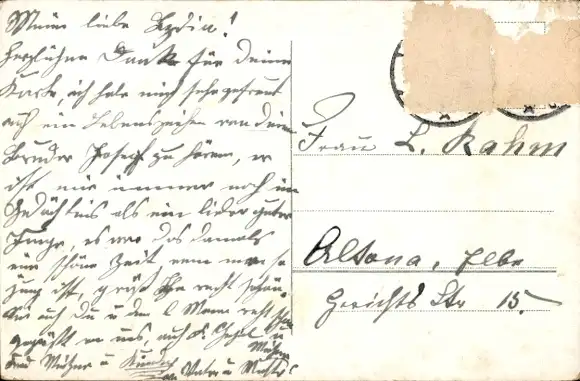 Meine liebe Lydia!
Herzlichen Dank für Deine
Karte, ich habe mich sehr gefreut
auch ein Lebenszeichen von deinem
Bruder Josef zu hören, er
ist mir immer noch im
Gedächtnis als ein lieber guter
Junge, es war das damals
eine schöne Zeit wenn man so
jung ist, grüß Ihn recht schön.
Sei auch Du u dein l. Mann recht schön
gegrüßt von uns, auch
Frau u
von Vater u Mutter
Frau L. Rahm
Altona, Elbe
Gerichts Str 15.